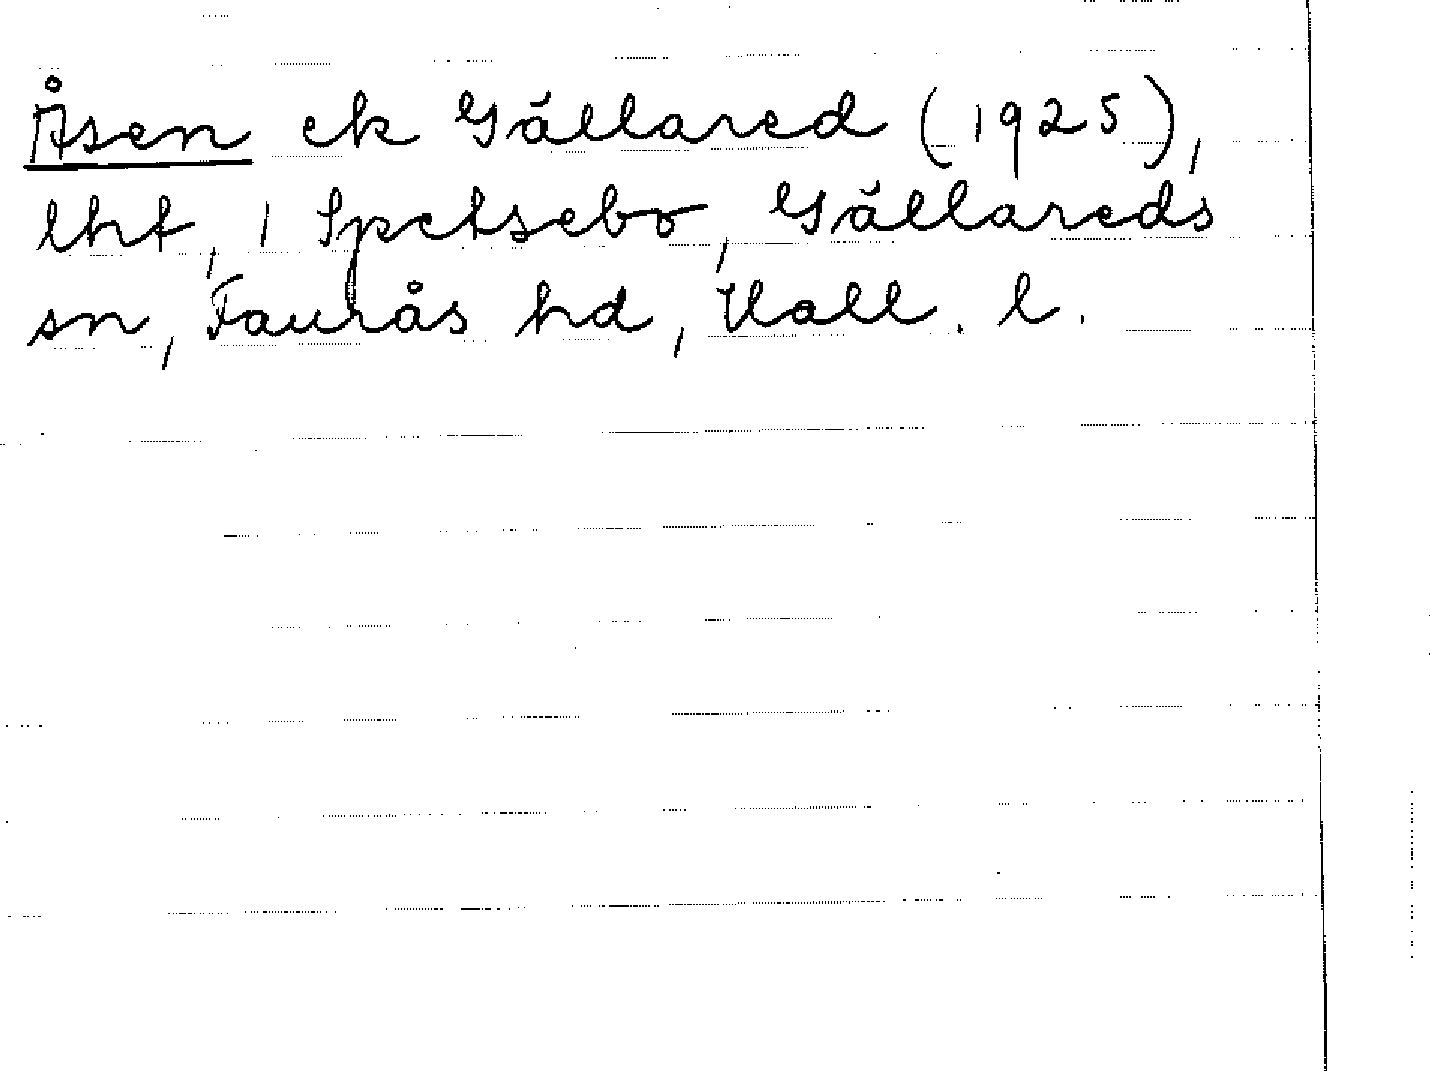 Åsen ek Gällared (1925),
lht, 1 Spetsebo, Gällareds
sn, Faurås hd, Hall. l.